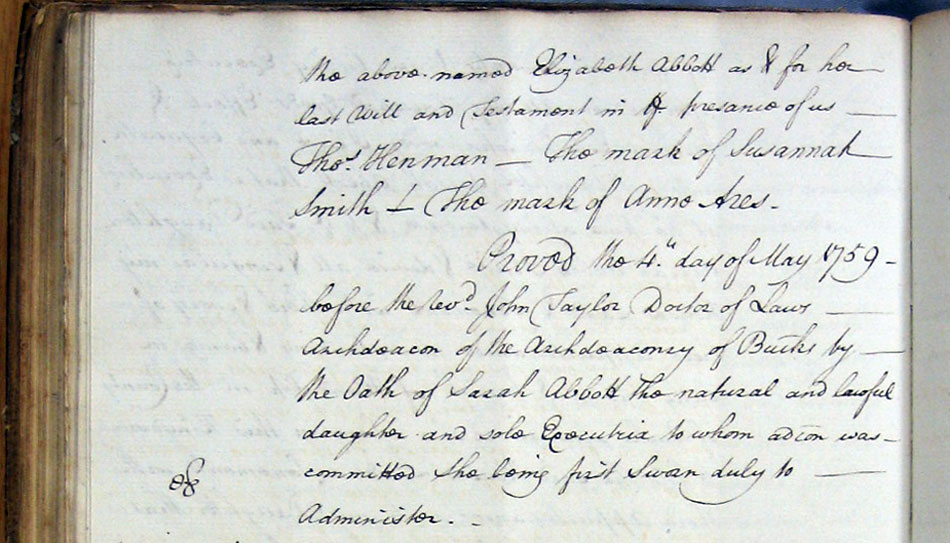 the above named Elizabeth Abbott as & for her
last Will and Testament in ye presence of us
Thos. Henman — The mark of Susannah
Smith — The mark of Anne Ares.
Proved the 4th day of May 1759
before the Revd. John Taylor Doctor of Laws
Archdeacon of the Archdeaconry of Bucks by
the Oath of Sarah Abbott the natural and lawful
daughter and sole Executrix to whom adcon was
committed She being first Sworn duly to
Administer.